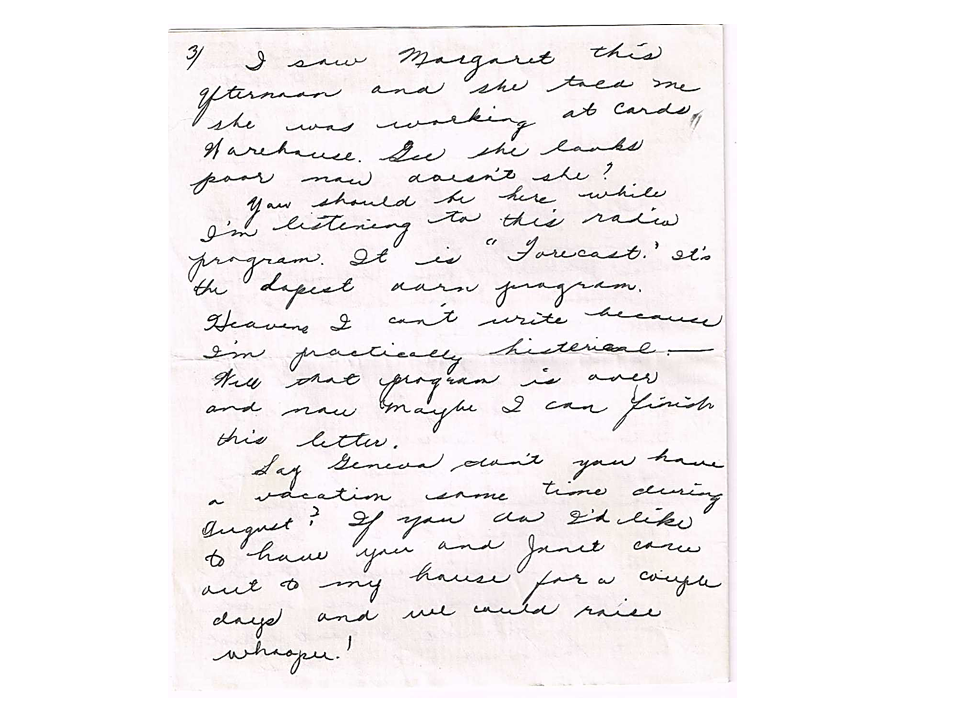 3/ I saw Margaret this
afternoon and she told me
she was working at Cards,
Warehouse. Gee she looks
poor now doesn't she?
You should be here while
I'm listening to this radio
program. It is "Forecast." It's
the dopest darn program.
Heavens I can't write because
I'm practically histerical. —
Well that program is over
and now maybe I can finish
this letter.
Say Geneva don't you have
a vacation some time during
August? If you do I'd like
to have you and Janet come
out to my house for a couple
days and we could raise
whoopee!